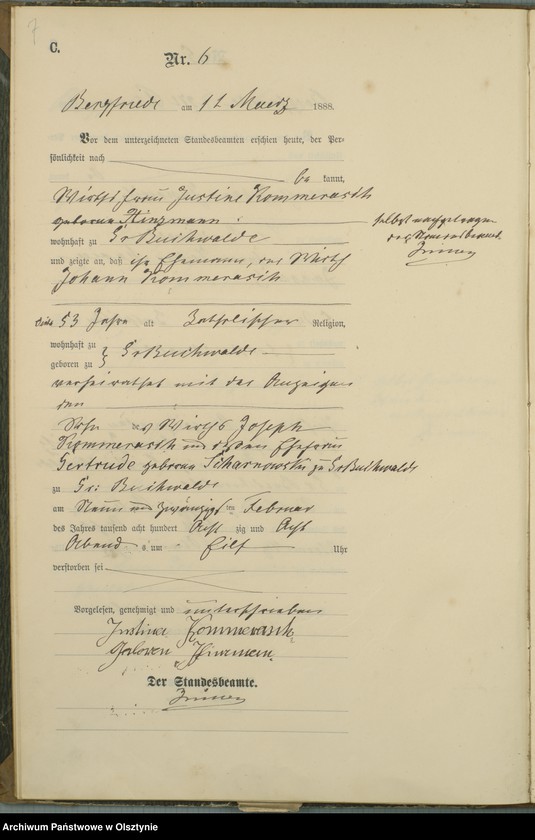 C.
Nr. 6
Bergfriede am 1ten Maerz 1888.
Vor dem unterzeichneten Standesbeamten erschien heute, der Per-
sönlichkeit nach
be kannt,
Wirthsfrau Justine Kommerasch
geborene Hinzmann
wohnhaft zu Gr Buchwalde
und zeigte an, daß ihr Ehemann, der Wirth
Johann Kommerasch
53 Jahre alt katholischer Religion,
wohnhaft zu
geboren zu } Gr Buchwalde
verheirathet mit der Anzeigen
den
Sohn des Wirths Joseph
Kommerasch und dessen Ehefrau
Gertrude geborene Scharnowski zu Gr Buchwalde
zu Gr: Buchwalde
am Neun und zwanzigsten Februar
des Jahres tausend acht hundert Acht zig und Acht
Abends um Eilf Uhr
verstorben sei
Vorgelesen, genehmigt und unterschrieben
Justine Kommerasch
geboren
Der Standesbeamte.
selbst
der Standesbeamte
Archiwum Państwowe w Olsztynie